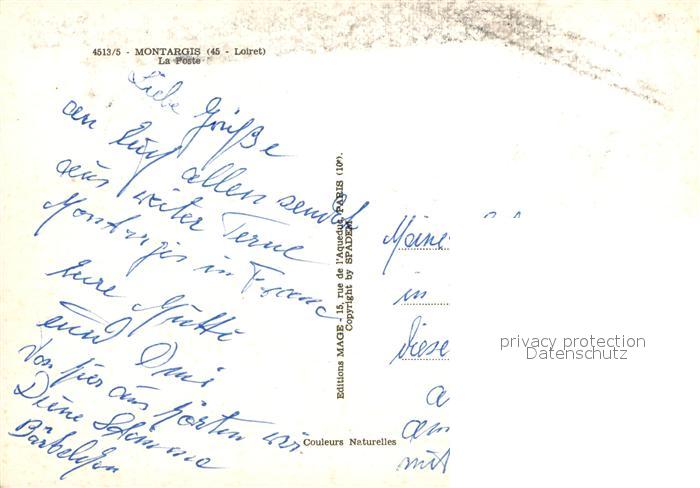 4513/5 - MONTARGIS (45 - Loiret)
La Poste
Liebe Grüße
an Euch allen sendet
aus weiter Ferne
Montargis in France
Eure Mutti
und Omi
Von hier aus hörten wir
Deine Stimme
Editions MAGE - 15, rue de l'Aqueduc, PARIS (10e).
Copyright by SPADEM
Couleurs Naturelles
Meine
in
diese
a
am
mit
privacy protection
Datenschutz